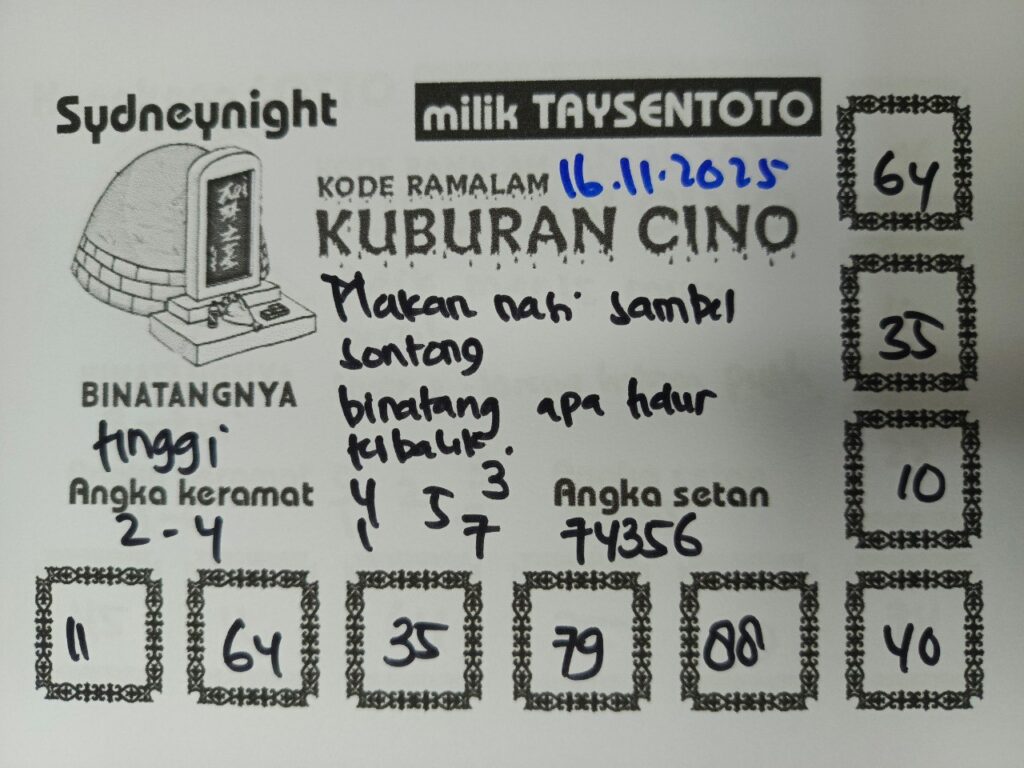 Sydneynight
milik TAYSENTOTO
KODE RAMALAM 16.11.2025
KUBURAN CINO
Makan nasi sambel
sontong
binatang apa tidur
terbalik.
BINATANGNYA
tinggi
Angka keramat
2-4
4 5 3
1 7
Angka setan
74356
64
35
10
11 64 35 79 88 40